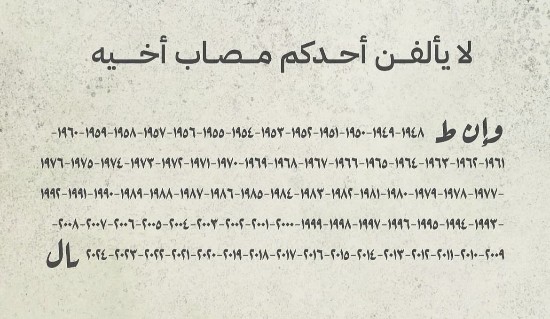 لا يألفن أحدكم مصاب أخيه
وإن ط ١٩٤٨-١٩٤٩-١٩٥٠-١٩٥١-١٩٥٢-١٩٥٣-١٩٥٤-١٩٥٥-١٩٥٦-١٩٥٧-١٩٥٨-١٩٥٩-١٩٦٠-
١٩٦١-١٩٦٢-١٩٦٣-١٩٦٤-١٩٦٥-١٩٦٦-١٩٦٧-١٩٦٨-١٩٦٩-١٩٧٠-١٩٧١-١٩٧٢-١٩٧٣-١٩٧٤-١٩٧٥-١٩٧٦
-١٩٧٧-١٩٧٨-١٩٧٩-١٩٨٠-١٩٨١-١٩٨٢-١٩٨٣-١٩٨٤-١٩٨٥-١٩٨٦-١٩٨٧-١٩٨٨-١٩٨٩-١٩٩٠-١٩٩١-١٩٩٢
-١٩٩٣-١٩٩٤-١٩٩٥-١٩٩٦-١٩٩٧-١٩٩٨-١٩٩٩-٢٠٠٠-٢٠٠١-٢٠٠٢-٢٠٠٣-٢٠٠٤-٢٠٠٥-٢٠٠٦-٢٠٠٧-٢٠٠٨-
٢٠٠٩-٢٠١٠-٢٠١١-٢٠١٢-٢٠١٣-٢٠١٤-٢٠١٥-٢٠١٦-٢٠١٧-٢٠١٨-٢٠١٩-٢٠٢٠-٢٠٢١-٢٠٢٢-٢٠٢٣-٢٠٢٤ ـال